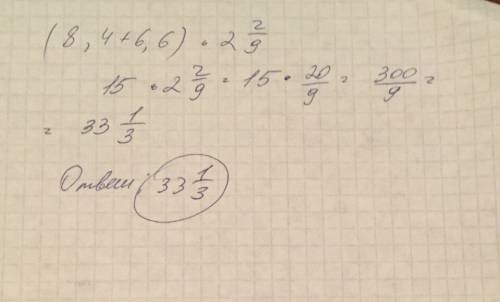 (8,4+6,6) · 2 2/9
15 · 2 2/9 = 15 · 20/9 = 300/9 =
= 33 1/3
Ответ: 33 1/3